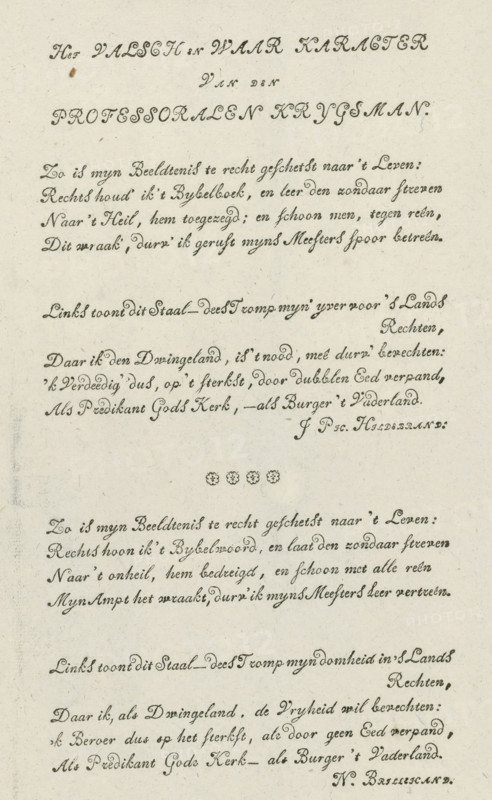 Het VALSCH en WAAR KARACTER
Van den
PROFESSORALEN KRYGSMAN.
Zo is myn Beeldtenis te recht geschetst naar 't Leven:
Rechts houd' ik 't Bybelboek, en leer den zondaar streven
Naar 't Heil, hem toegezegd; en schoon men, tegen reên,
Dit wraak', durv' ik gerust myns Meesters spoor betreên.
Links toont dit Staal_ dees Tromp myn' yver voor 's Lands
Rechten,
Daar ik den Dwingeland, is 't nood, meê durv' bevechten:
'k Verdedig' dus, op 't sterkst, door dubblen Eed verpand,
Als Predikant Gods Kerk, _als Burger 't Vaderland.
❁ ❁ ❁ ❁
Zo is myn Beeldtenis te recht geschetst naar 't Leven:
Rechts hoon ik 't Bybelwoord, en laat den zondaar streven
Naar 't onheil, hem bedreigd, en schoon met alle reên
Myn Ampt het wraakt, durv' ik myns Meesters Leer vertreên.
Links toont dit Staal_ dees Tromp myn domheid in 's Lands
Rechten,
Daar ik, als Dwingeland, de Vryheid wil bevechten:
'k Berver dus op het sterkst, als door geen Eed verpand,
Als Predikant Gods Kerk_ als Burger 't Vaderland.